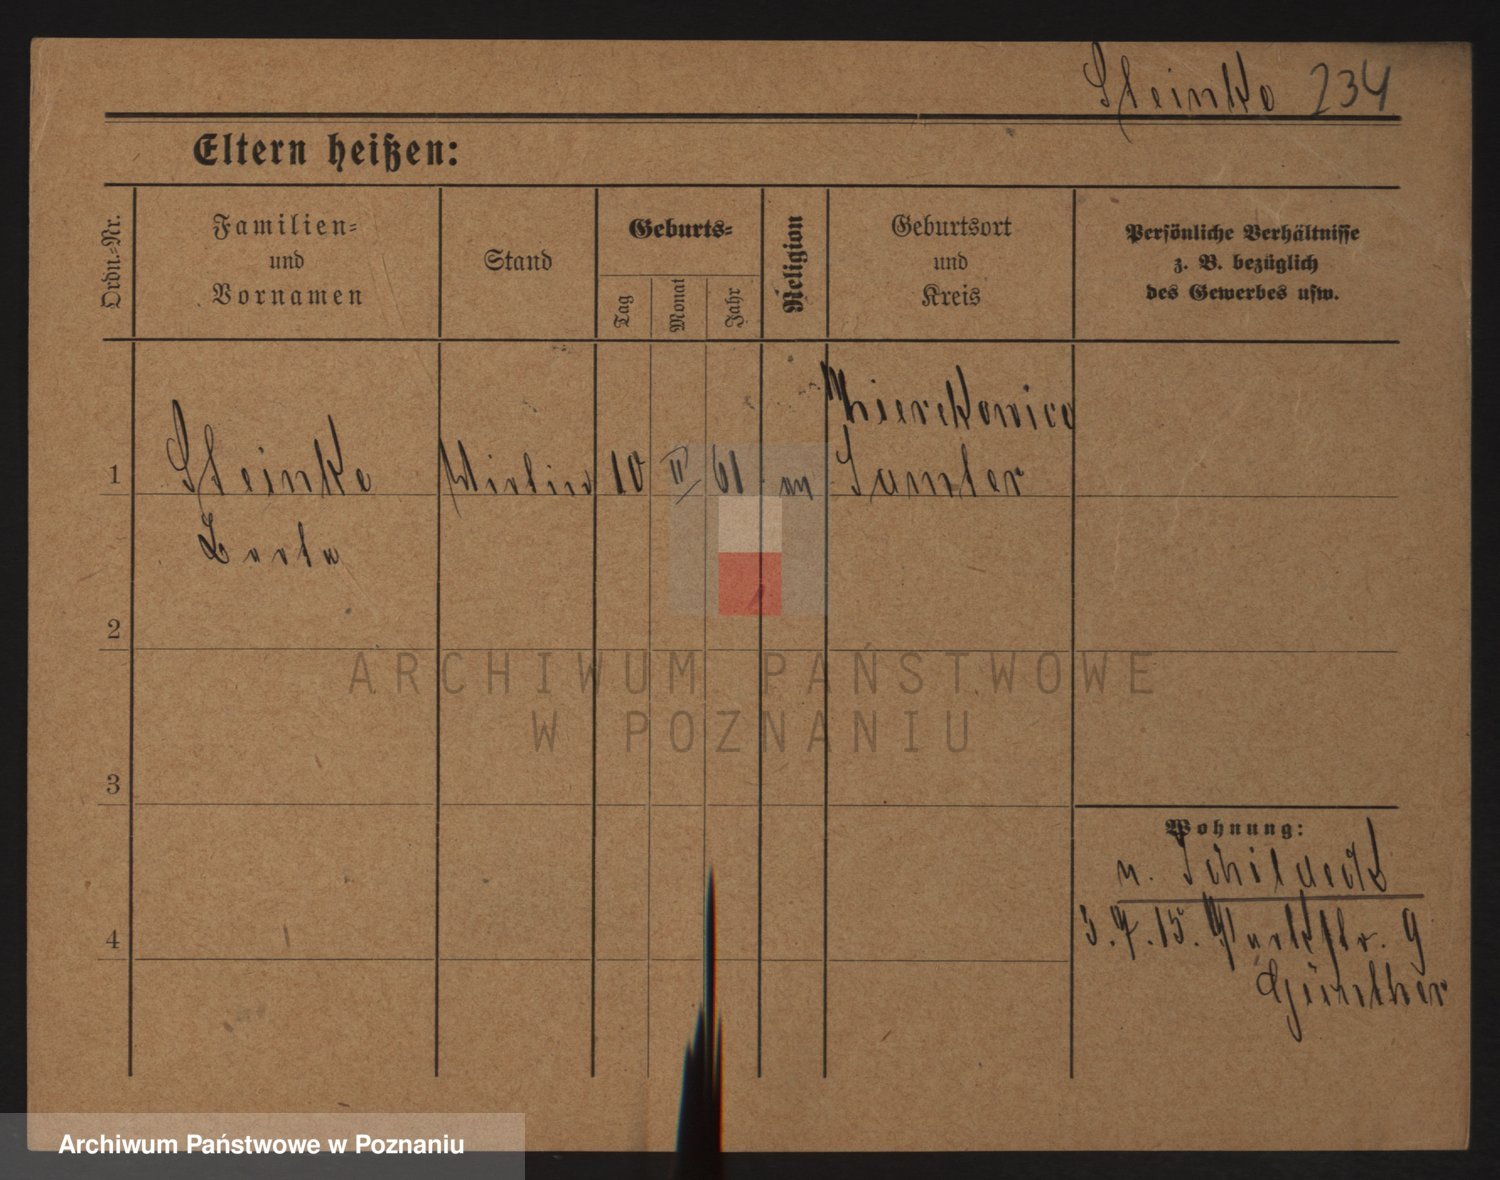 Steinke 234
Eltern heißen:
Ordn.=Nr.
Familien=
und
Vornamen
Stand
Geburts=
Tag
Monat
Jahr
Religion
Geburtsort
und
Kreis
Persönliche Verhältnisse
z. B. bezüglich
des Gewerbes usw.
1
Steinke
10
II
61
Samter
2
3
4
Wohnung:
n.
3.7.15. Parkstr. 9
Günther
ARCHIWUM PAŃSTWOWE
W POZNANIU
Archiwum Państwowe w Poznaniu